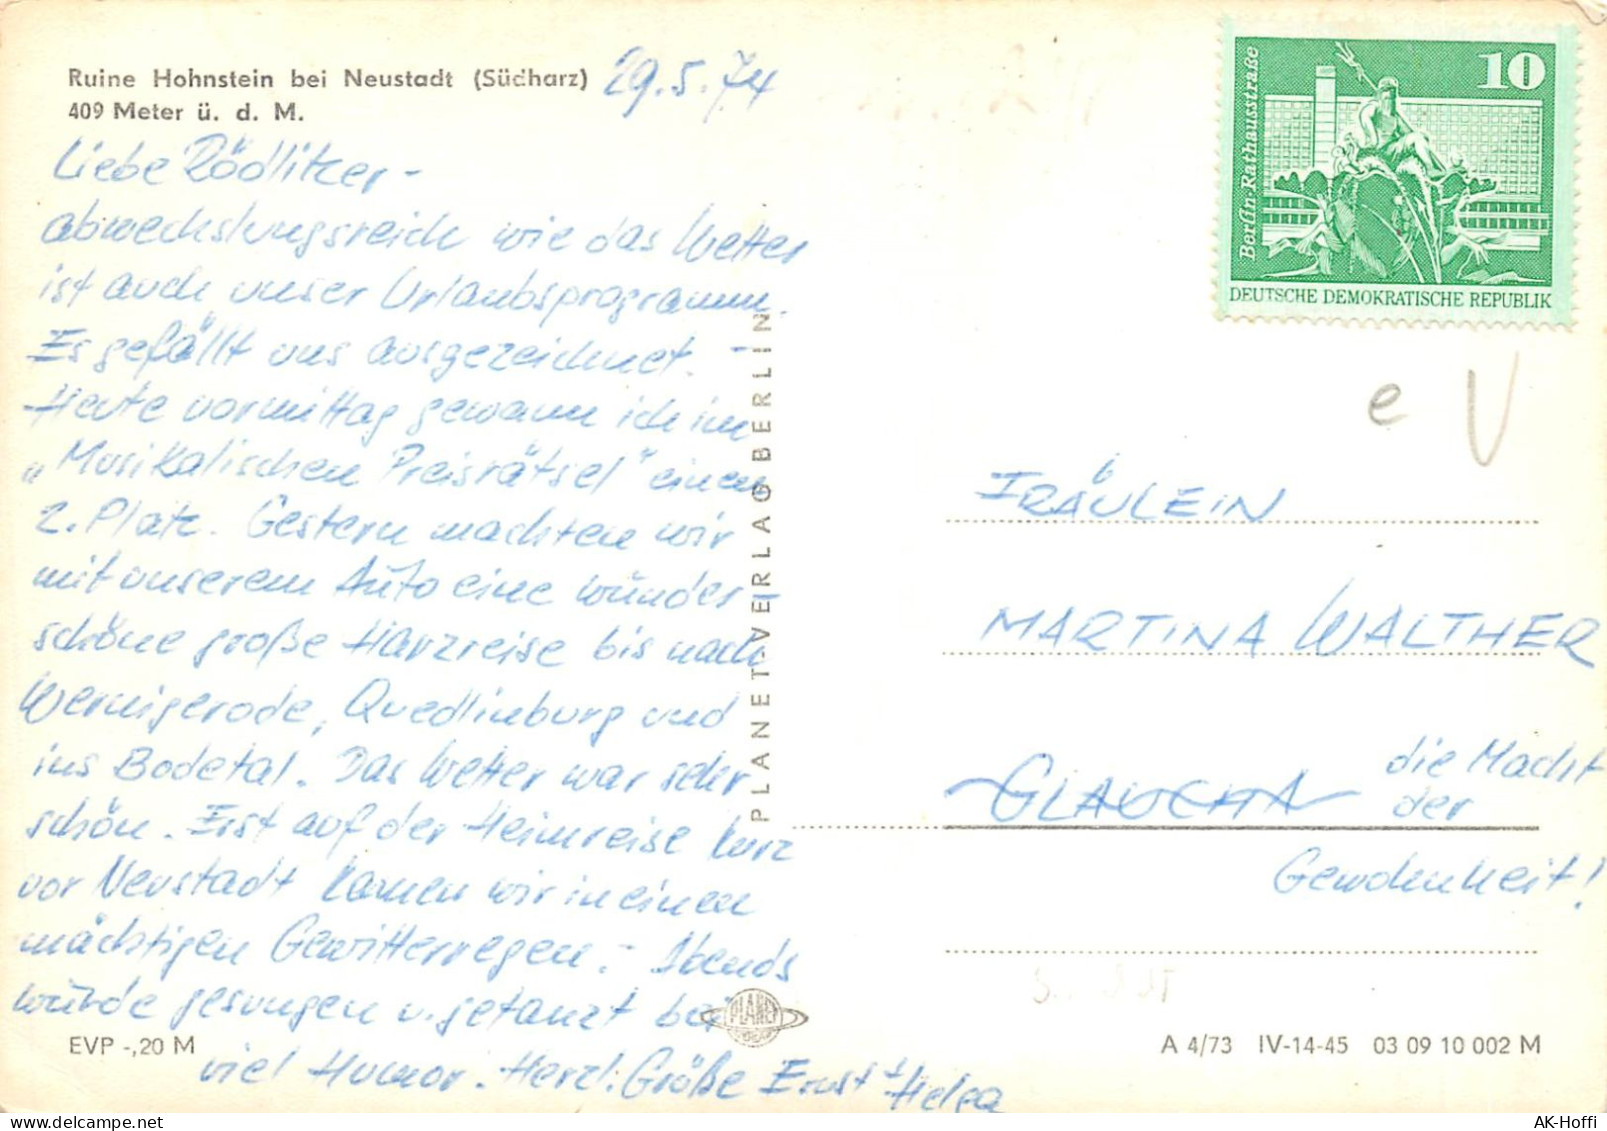 Ruine Hohnstein bei Neustadt (Südharz) 29.5.74
409 Meter ü. d. M.
Liebe Rödlitzer -
abwechslungsreich wie das Wetter
ist auch unser Urlaubsprogramm.
Es gefällt uns ausgezeichnet. -
Heute vormittag gewann ich im
„Musikalischen Preisrätsel" einen
2. Platz. Gestern machten wir
mit unserem Auto eine wunder-
schöne große Harzreise bis nach
Wernigerode, Quedlinburg und
ins Bodetal. Das Wetter war sehr
schön. Erst auf der Heimreise kurz
vor Neustadt kamen wir in einen
mächtigen Gewitterregen. - Abends
wurde gesungen u. getanzt bei
viel Humor. Herzl. Grüße Ernst + Helga
EVP -,20 M
PLANET-VERLAG BERLIN
PLANET
10
Berlin-Rathausstraße
DEUTSCHE DEMOKRATISCHE REPUBLIK
e V
FRÄULEIN
MARTINA WALTHER
GLAUCHA die Macht
der
Gewohnheit!
A 4/73 IV-14-45 03 09 10 002 M
AK-Hoffi